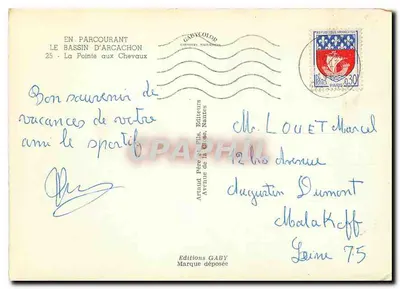 EN PARCOURANT
LE BASSIN D'ARCACHON
25 - La Pointe aux Chevaux
GABYCOLOR
Bon souvenir de
vacances de votre
ami le sportif
Artaud Père et Fils, Editeurs
Avenue de la Close, Nantes
Editions GABY
Marque déposée
PARIS
0,30
M. LOUET Marcel
12 bis Avenue
Augustin Dumont
Malakoff
Seine 75